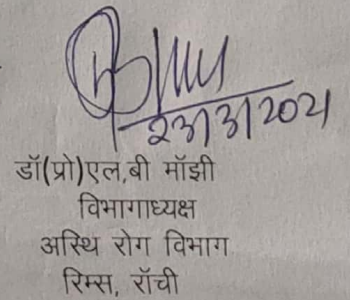 23/3/2021
डॉ(प्रो)एल,बी मॉझी
विभागाध्यक्ष
अस्थि रोग विभाग
रिम्स, रॉंची